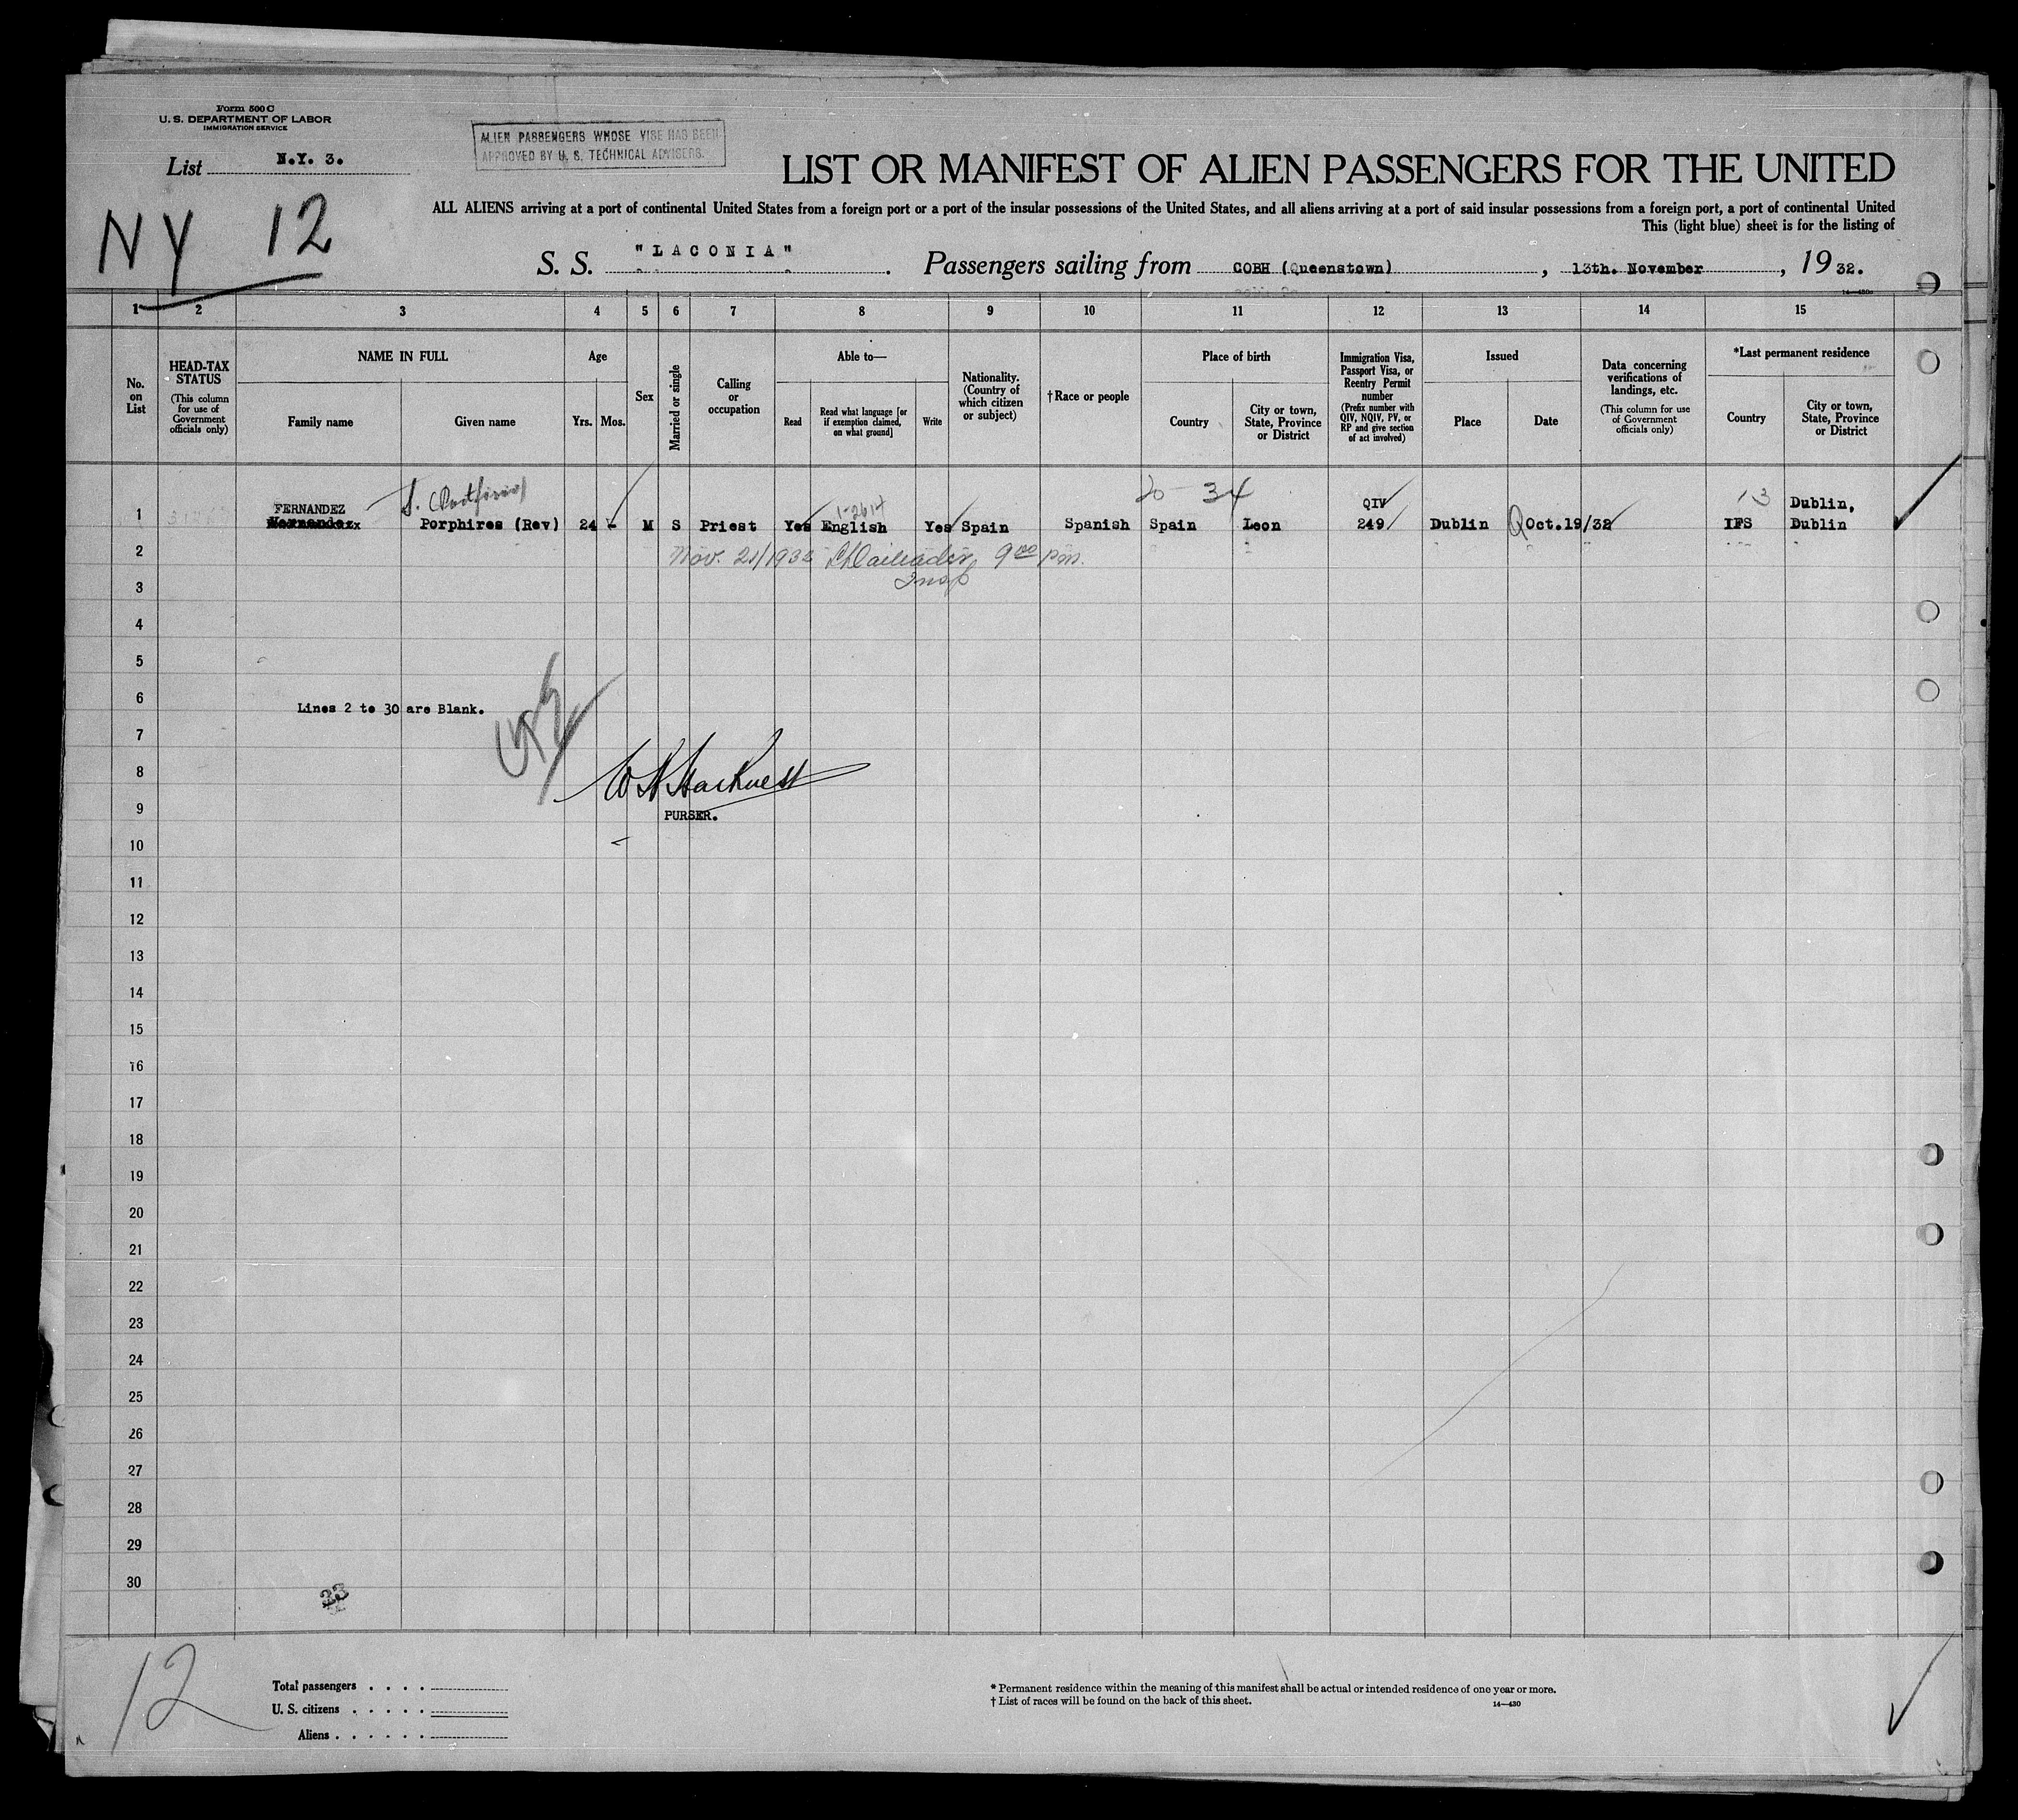 Form 500 C
U. S. DEPARTMENT OF LABOR
IMMIGRATION SERVICE
List N.Y. 3.
ALIEN PASSENGERS WHOSE VISE HAS BEEN
APPROVED BY U. S. TECHNICAL ADVISERS.
NY 12
LIST OR MANIFEST OF ALIEN PASSENGERS FOR THE UNITED
ALL ALIENS arriving at a port of continental United States from a foreign port or a port of the insular possessions of the United States, and all aliens arriving at a port of said insular possessions from a foreign port, a port of continental United
This (light blue) sheet is for the listing of
S. S. "LACONIA". Passengers sailing from COBH (Queenstown), 13th. November, 1932.
14—430
1 2 3 4 5 6 7 8 9 10 11 12 13 14 15
No. on List
HEAD-TAX STATUS
(This column for use of Government officials only)
NAME IN FULL
Family name Given name
Age
Yrs. Mos.
Sex
Married or single
Calling or occupation
Able to—
Read
Read what language [or if exemption claimed, on what ground]
Write
Nationality. (Country of which citizen or subject)
†Race or people
Place of birth
Country
City or town, State, Province or District
Immigration Visa, Passport Visa, or Reentry Permit number
(Prefix number with QIV, NQIV, PV, or RP and give section of act involved)
Issued
Place Date
Data concerning verifications of landings, etc.
(This column for use of Government officials only)
*Last permanent residence
Country
City or town, State, Province or District
S. (Porfirio) 20 - 34 13
FERNANDEZ 1-2614 QIV Dublin,
1 Porphires (Rev) 24 - M S Priest Yes English Yes Spain Spanish Spain Leon 249 Dublin Oct.19/32 IFS Dublin
2 Nov. 21/1932 9 00 pm.
Insp
3
4
5
6
Lines 2 to 30 are Blank.
7
8
W Harkness
9
PURSER.
10
11
12
13
14
15
16
17
18
19
20
21
22
23
24
25
26
27
28
29
30
33
12
Total passengers . . . .
U. S. citizens . . . . .
Aliens . . . . . .
* Permanent residence within the meaning of this manifest shall be actual or intended residence of one year or more.
† List of races will be found on the back of this sheet. 14—430